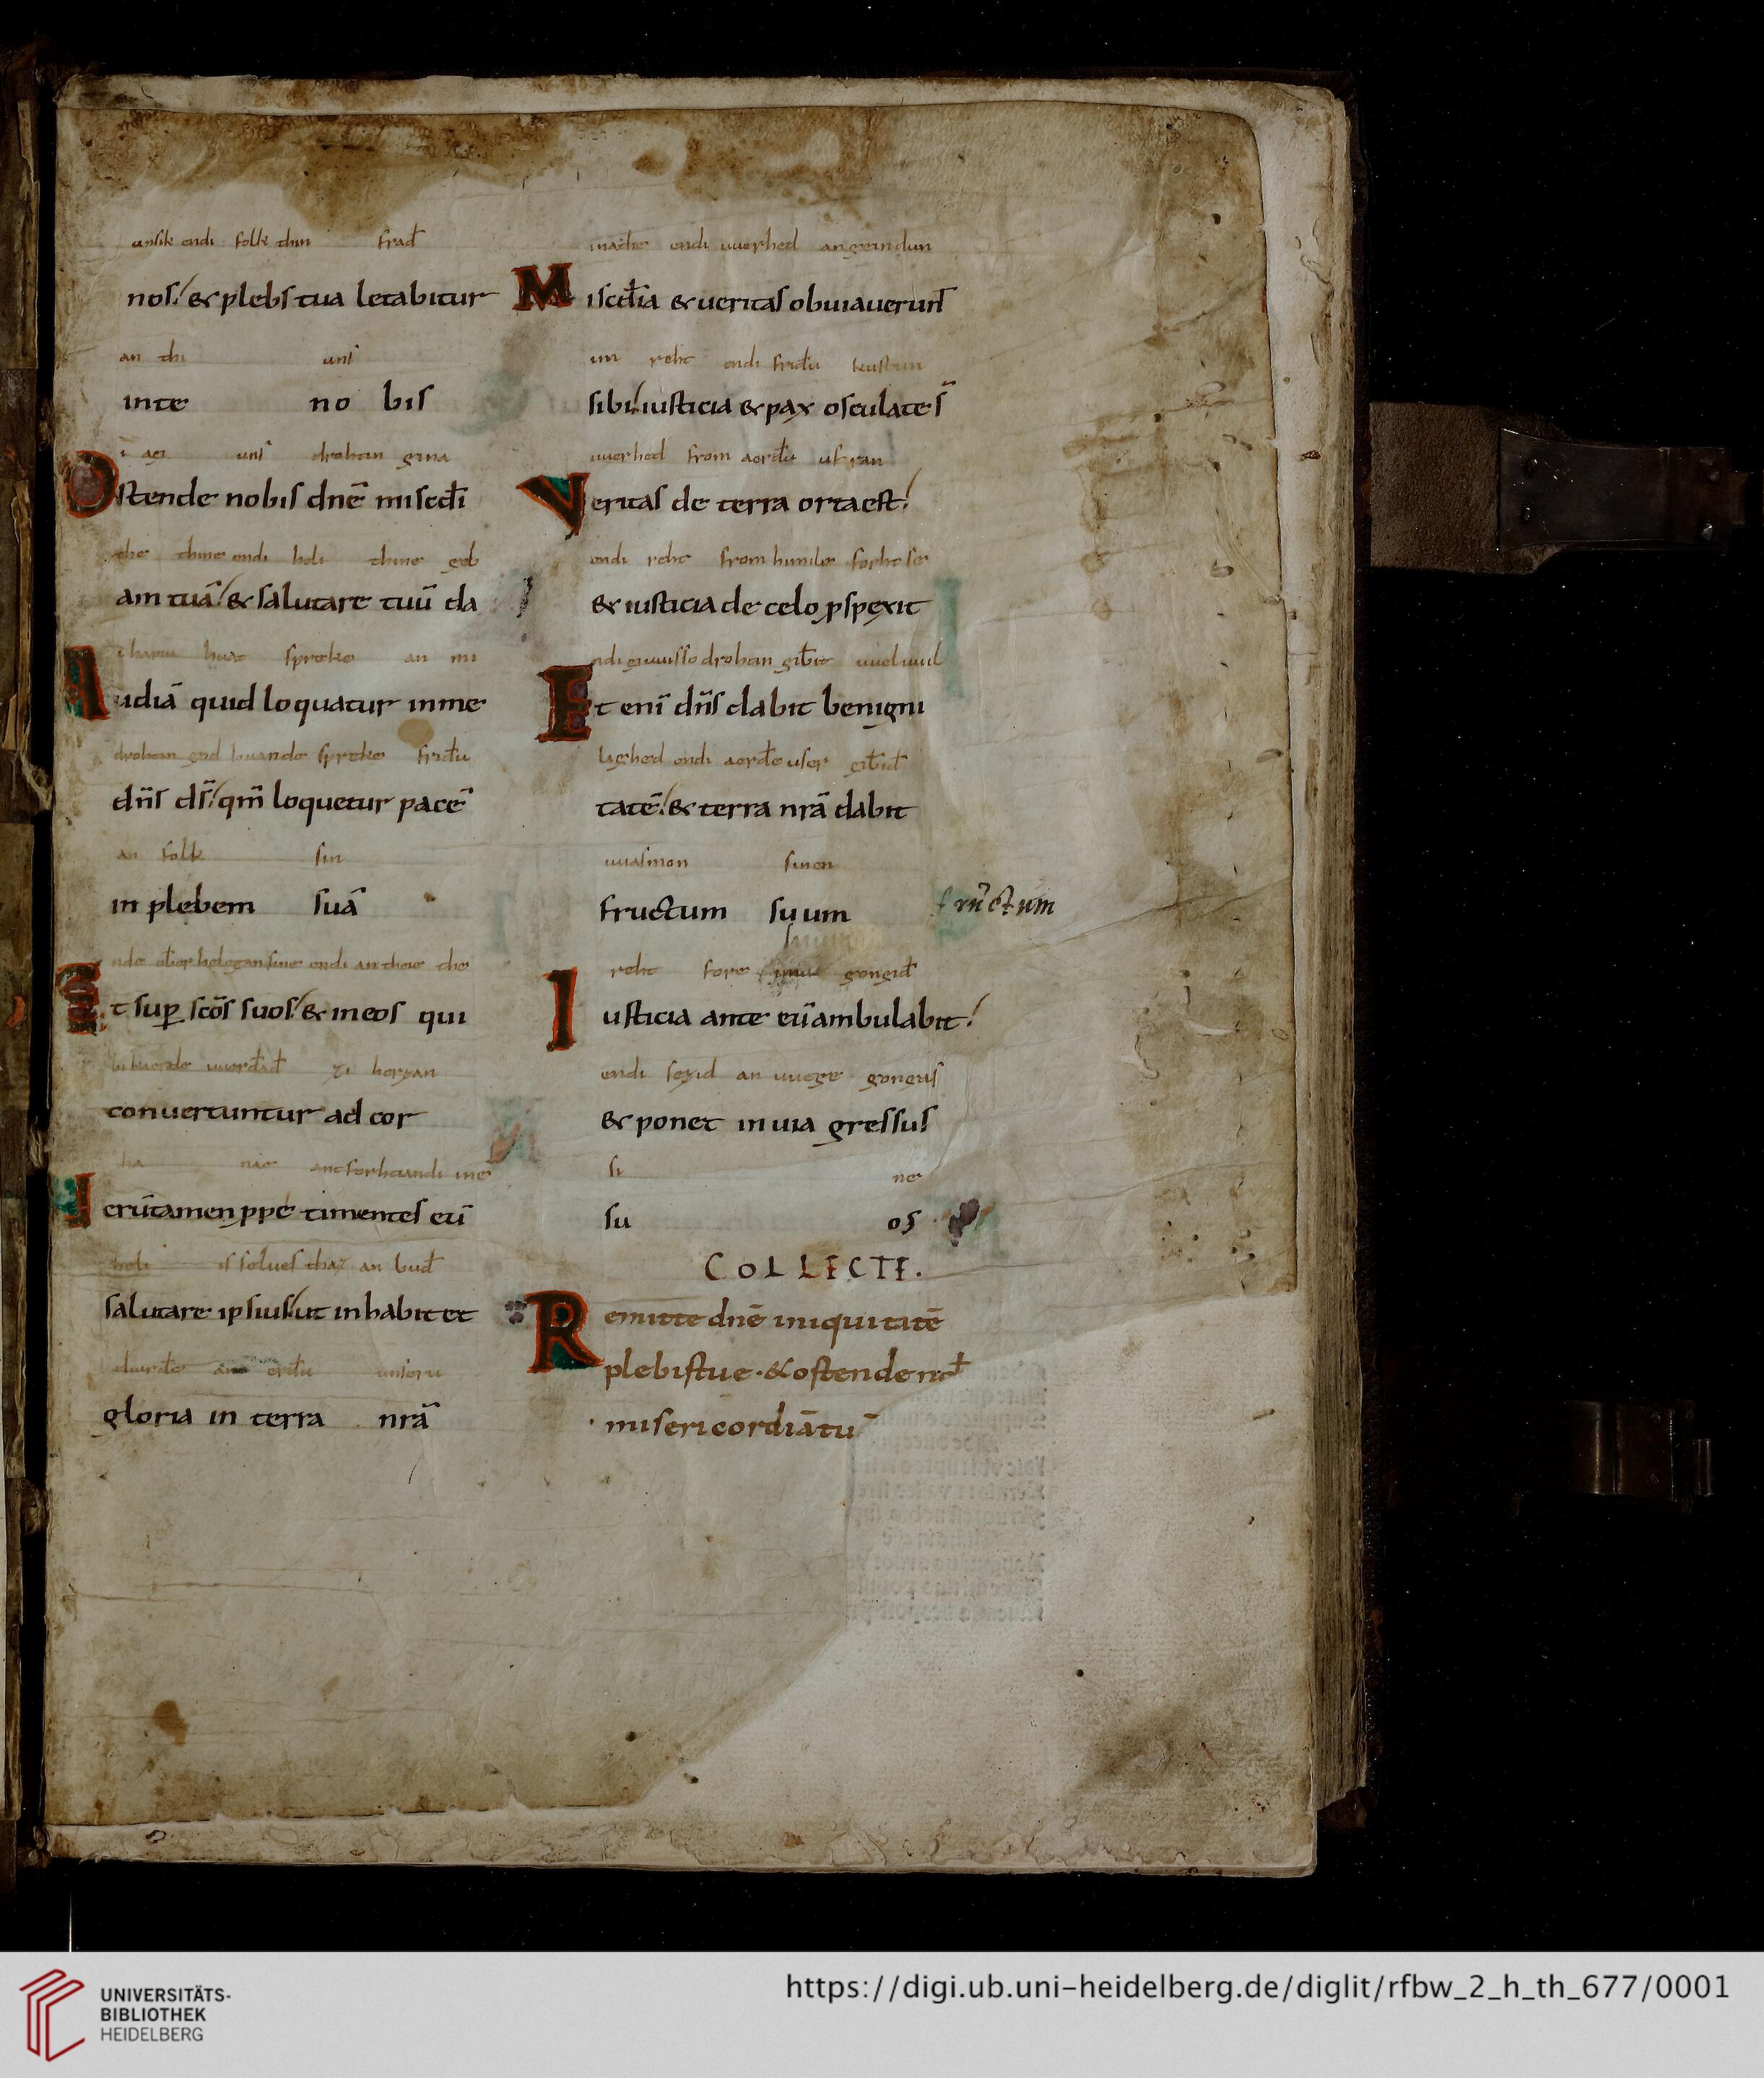 unsik endi folk thin frađ
nos⸵ & plebs tua letabitur
an thi uns
inte no bis
uns drohtin gina
Ostende nobis dnē miscđi
the thine endi heli thine geb
am tuā⸵ & salutare tuū da
huat spreke an mi
Audiā quid loquatur in me
drohtin god huande spreke friđu
dn̄s ds̄⸵ qm̄ loquetur pacē
an folk sin
in plebem suā
nde ouer helegan sine endi an thie the
Et sup scōs suos⸵ & in eos qui
uuerđađ
conuertuntur ad cor
ant forhtiandi ine
erūtamen ppe timentes eū
heli is selues thaz an buđ
salutare ipsius⸵ ut inhabitet
an erđu
gloria in terra nrā
endi uuarhed angeindun
Miscđia & ueritas obuiauerunt̄
im reht endi friđu kustun
sibi⸵ iusticia & pax osculate s̄
uuarhed from aerđu
Veritas de terra orta est⸵
endi reht from himile
& iusticia de celo pspexit
ndi geuuisso drohtin giƀit
Et enī dn̄s dabit benigni
lighed endi aerđe user giƀiđ
tatē⸵ & terra nrā dabit
uuasmon sinen
fructum suum frūctum
reht fore gengiđ
Iusticia ante eū ambulabit⸵
endi sezid an uuege gengis
& ponet in uia gressus
si ne
su os
COLLECTE.
Remitte dnē iniquitatē
plebis tue · & ostende nob̄
misericordiā tu
https://digi.ub.uni-heidelberg.de/diglit/rfbw_2_h_th_677/0001
UNIVERSITÄTS-
BIBLIOTHEK
HEIDELBERG